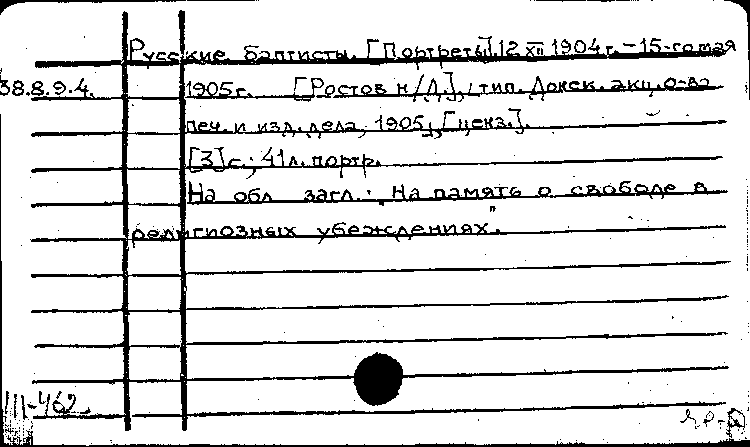 Русские баптисты. [Портреты]. 12 XII 1904 г. - 15-го мая
38.8.9.4. 1905 г. [Ростов н/Д.], тип. Донск. акц. о-ва
печ. и изд. дела, 1905, [ценз.].
[3] с.; 41 л. портр.
На обл. загл.: "На память о свободе в
религиозных убеждениях".
III-462